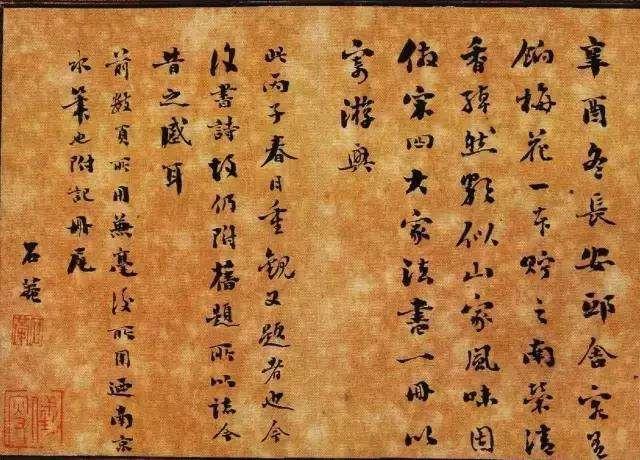 辛酉冬長安邸舍客有
餉梅花一本貯之南榮清
香然頗似山家風味因
倣宋四大家法書一冊以
寄游興
此丙子春日重觀又題者也今
復書詩故仍附舊題所以誌今
昔之感耳
前數頁所用兼毫後所用迺南京
水筆也附記冊尾
石菴